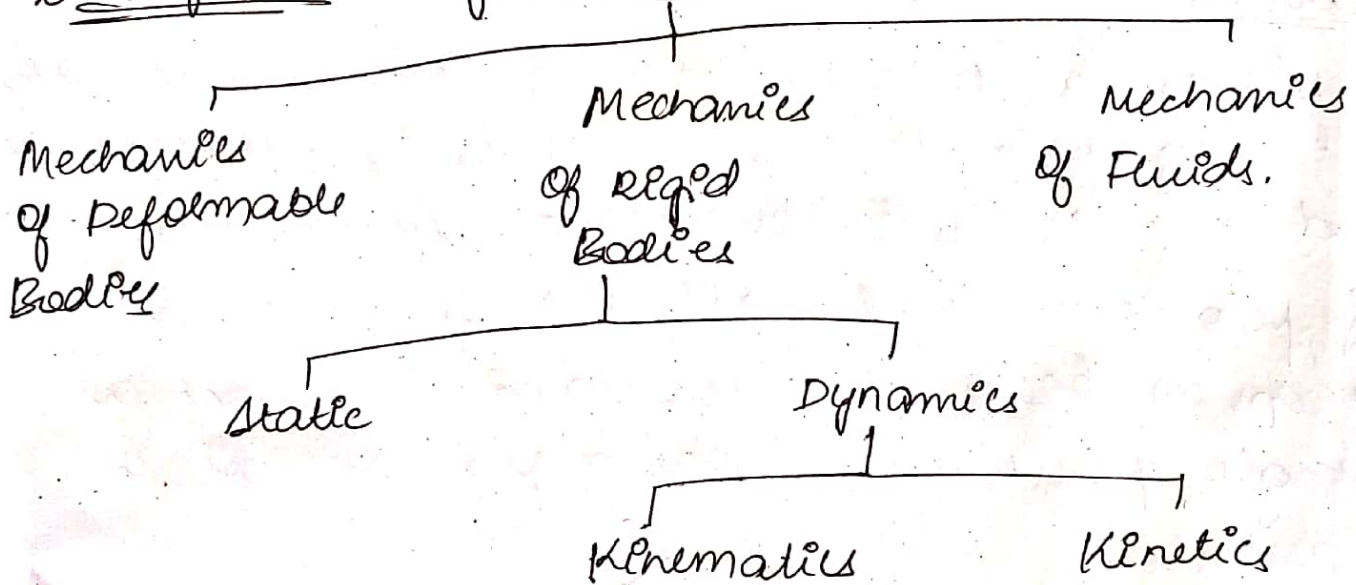 Mechanics
of Deformable
Bodies
Mechanics
of Rigid
Bodies
Mechanics
of Fluids.
Static
Dynamics
Kinematics
Kinetics